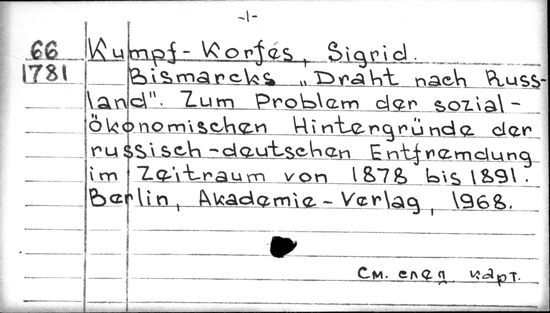 -1-
66 Kumpf-Korfes, Sigrid.
1781 Bismarcks „Draht nach Russ-
land". Zum Problem der sozial-
ökonomischen Hintergründe der
russisch-deutschen Entfremdung
im Zeitraum von 1878 bis 1891.
Berlin, Akademie-Verlag, 1968.
См. след карт.